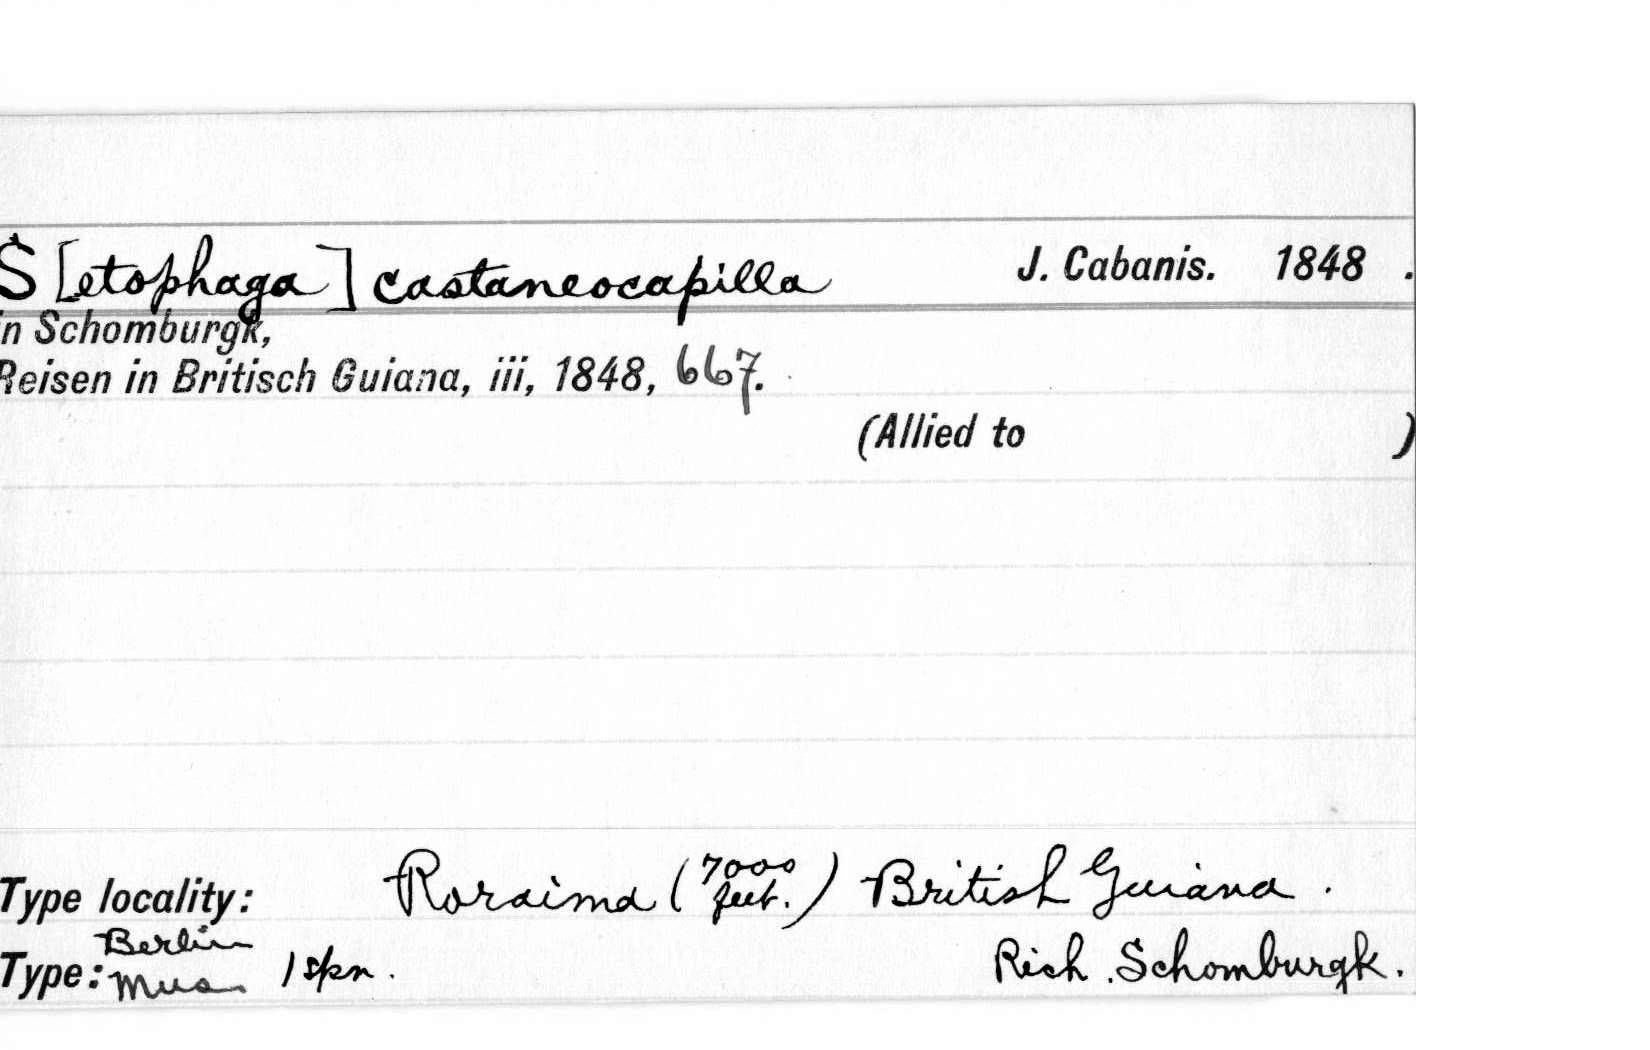 S[etophaga] castaneocapilla J. Cabanis. 1848 .
in Schomburgk,
Reisen in Britisch Guiana, iii, 1848, 667.
(Allied to )
Type locality: Roraima (7000 feet.) British Guiana.
Type: Berlin Mus. 1 spn. Rich. Schomburgk.